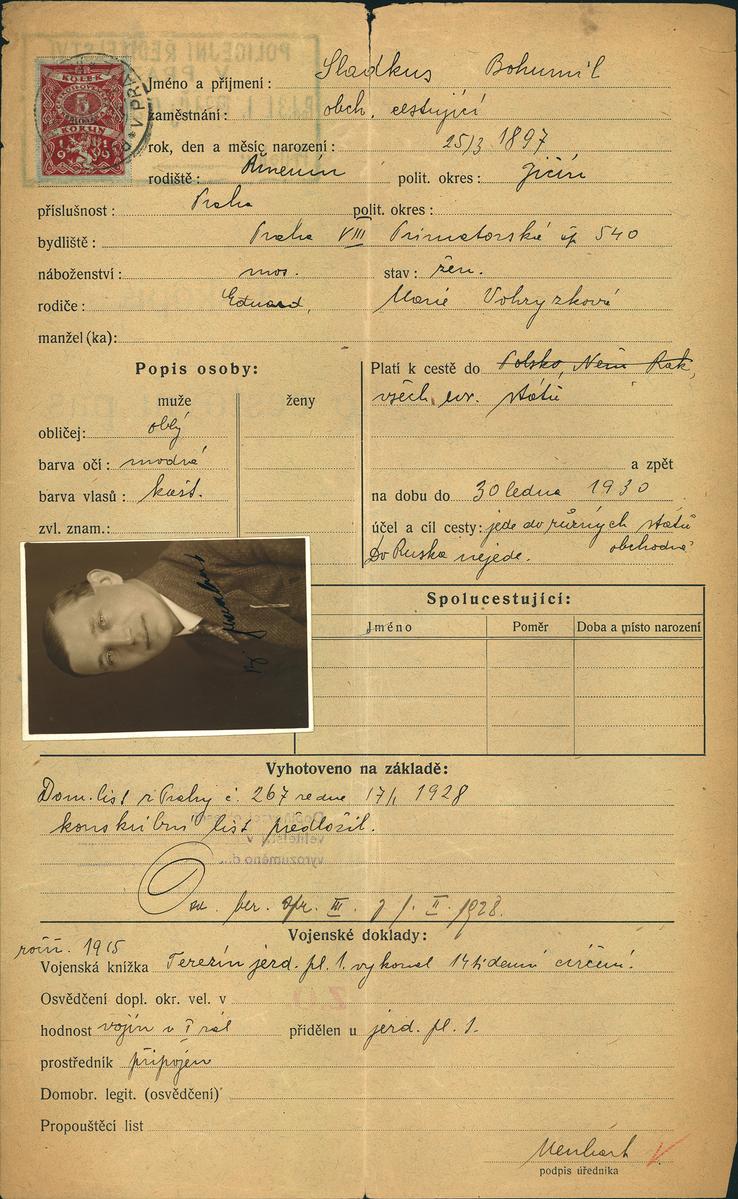 KOLEK
5
KORUN
1919
Jméno a příjmení: Sladkus Bohumil
zaměstnání: obch. cestující
rok, den a měsíc narození: 25/3 1897
rodiště: polit. okres: Jičín
příslušnost: Praha polit. okres:
bydliště: Praha VIII Primatorská čp 540
náboženství: mos. stav: žen.
rodiče: Eduard, Marie Vohryzková
manžel (ka):
Popis osoby:
muže ženy
obličej: oblý
barva očí: modrá
barva vlasů: kašt.
zvl. znam.:
Platí k cestě do Polsko, Něm Rak,
všech evr. států
a zpět
na dobu do 30 ledna 1930
účel a cíl cesty: jede do různých států
obchodně
Do Ruska nejede.
Spolucestující:
Jméno Poměr Doba a místo narození
Vyhotoveno na základě:
Dom. list z Prahy č. 267 ze dne 17/1 1928
konskribční list předložil.
ber. spr. III. z 1. II. 1928.
Vojenské doklady:
1915
Vojenská knížka Terezín jezd. pl. 1. vykonal 14 tidenní cvičení.
Osvědčení dopl. okr. vel. v
hodnost vojín v přidělen u jezd. pl. 1.
prostředník připojen
Domobr. legit. (osvědčení)
Propouštěcí list
podpis úředníka